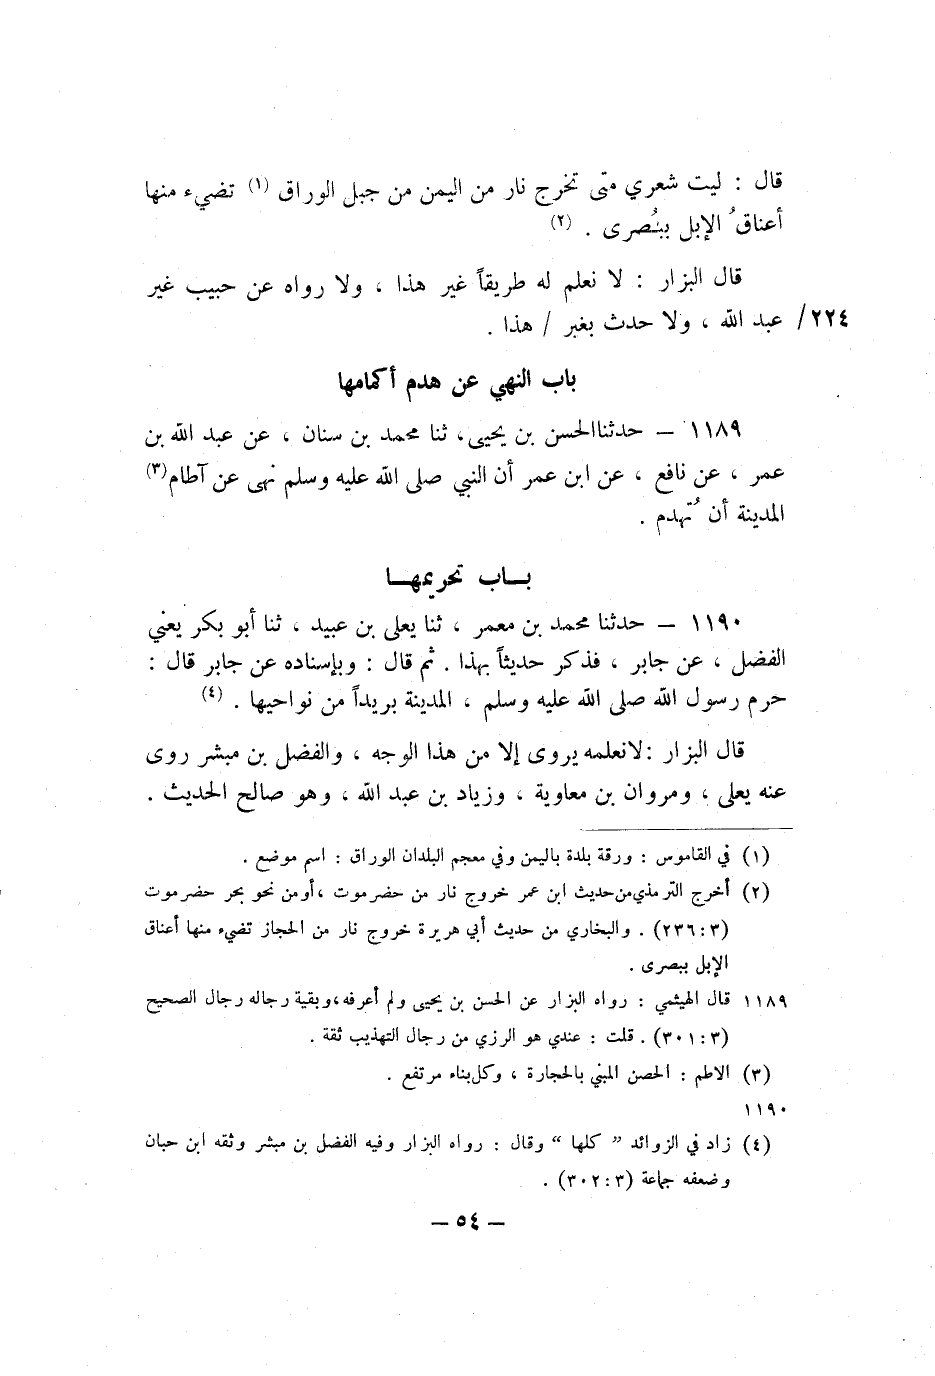 قال : ليت شعري متى تخرج نار من اليمن من جبل الوراق (١) تضيء منها
أعناقُ الإبل ببُصرى . (٢)
قال البزار : لا نعلم له طريقاً غير هذا ، ولا رواه عن حبيب غير
٢٢٤/ عبد الله ، ولا حدث بغير / هذا .
باب النهي عن هدم أكمامها
١١٨٩ – حدثنا الحسن بن يحيى ، ثنا محمد بن سنان ، عن عبد الله بن
عمر ، عن نافع ، عن ابن عمر أن النبي صلى الله عليه وسلم نهى عن آطام (٣)
المدينة أن تُهدم .
بــاب تحريمهــا
١١٩٠ – حدثنا محمد بن معمر ، ثنا يعلى بن عبيد ، ثنا أبو بكر يعني
الفضل ، عن جابر ، فذكر حديثاً بهذا . ثم قال : وبإسناده عن جابر قال :
حرم رسول الله صلى الله عليه وسلم ، المدينة بريداً من نواحيها . (٤)
قال البزار : لانعلمه يروى إلا من هذا الوجه ، والفضل بن مبشر روى
عنه يعلى ، ومروان بن معاوية ، وزياد بن عبد الله ، وهو صالح الحديث .
(١) في القاموس : ورقة بلدة باليمن وفي معجم البلدان الوراق : اسم موضع .
(٢) أخرج الترمذي من حديث ابن عمر خروج نار من حضرموت ، أو من نحو بحر حضرموت
(٢٣٦:٣) . والبخاري من حديث أبي هريرة خروج نار من الحجاز تضيء منها أعناق
الإبل ببصرى .
١١٨٩ قال الهيثمي : رواه البزار عن الحسن بن يحيى ولم أعرفه ، وبقية رجاله رجال الصحيح
(٣٠١:٣) . قلت : عندي هو الرزي من رجال التهذيب ثقة .
(٣) الاطم : الحصن المبني بالحجارة ، وكل بناء مرتفع .
١١٩٠
(٤) زاد في الزوائد " كلها " وقال : رواه البزار وفيه الفضل بن مبشر وثقه ابن حبان
وضعفه جماعة (٣٠٢:٣) .
– ٥٤ –